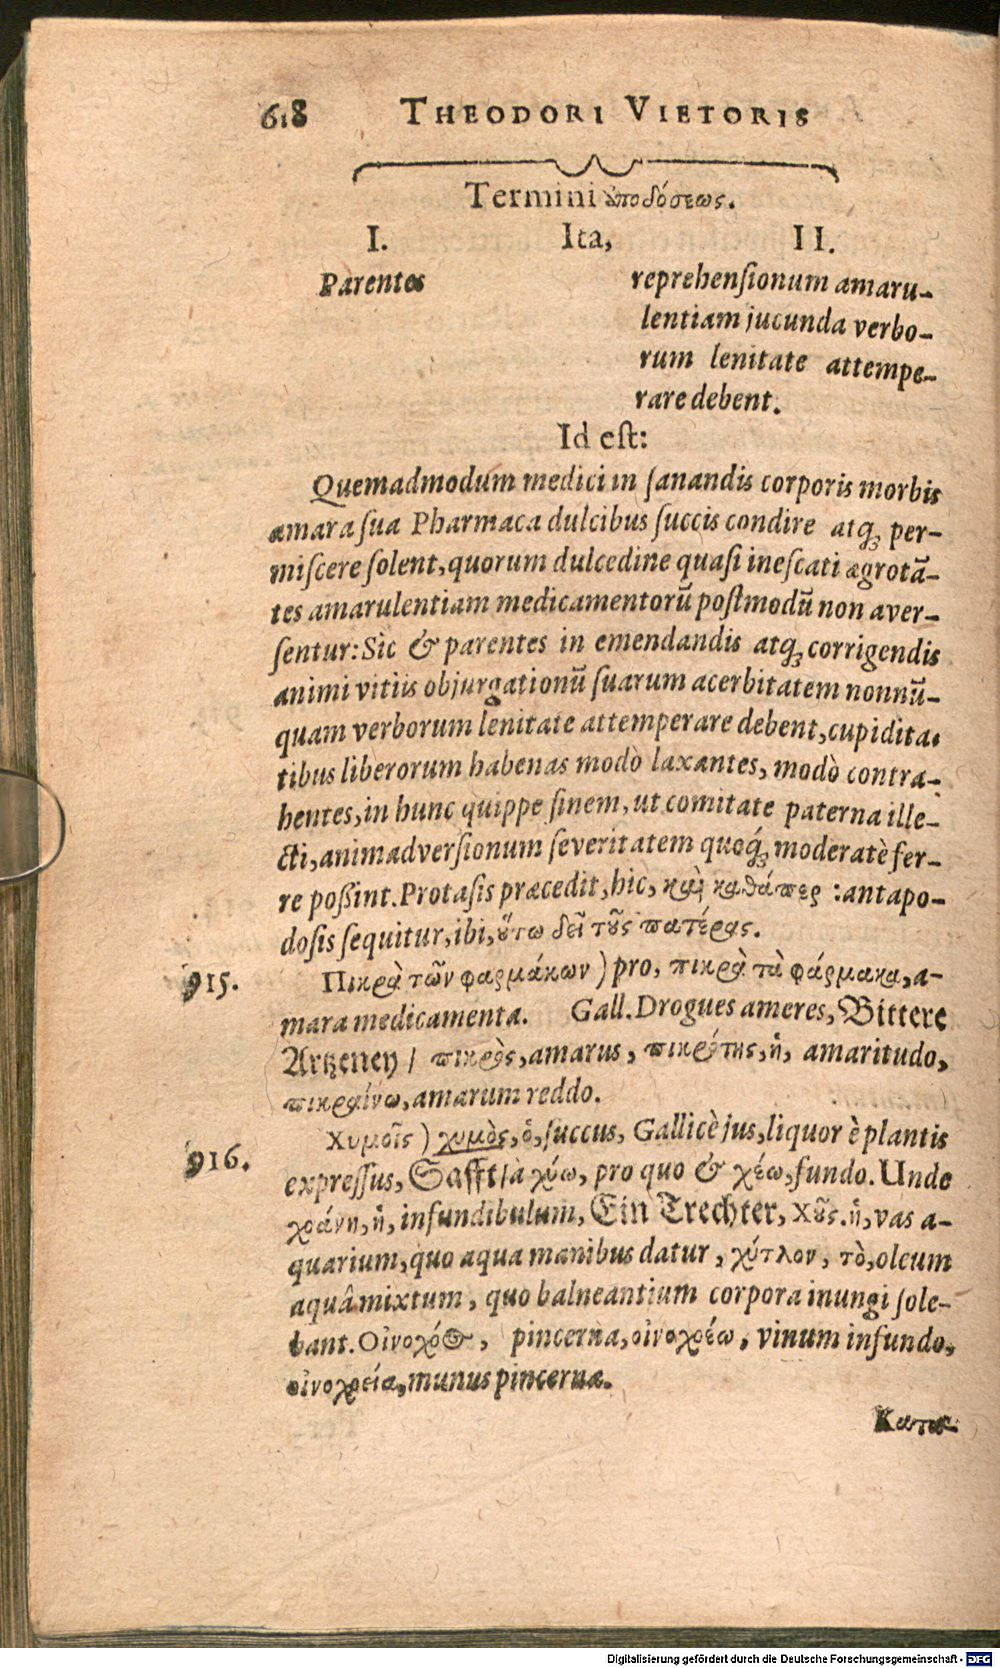 618 THEODORI VIETORIS
Termini ἀποδόσεως.
I. Ita, II.
Parentes reprehenſionum amaru-
lentiam jucunda verbo-
rum lenitate attempe-
rare debent.
Id eſt:
Quemadmodum medici in ſanandis corporis morbis
amara ſua Pharmaca dulcibus ſuccis condire atq; per-
miſcere ſolent, quorum dulcedine quaſi ineſcati ægrotā-
tes amarulentiam medicamentorū poſtmodū non aver-
ſentur: Sic & parentes in emendandis atq; corrigendis
animi vitiis objurgationū ſuarum acerbitatem nonnū-
quam verborum lenitate attemperare debent, cupidita-
tibus liberorum habenas modò laxantes, modò contra-
hentes, in hunc quippe finem, ut comitate paterna ille-
cti, animadverſionum ſeveritatem quoq́; moderatè fer-
re poßint. Protaſis præcedit, hic, καὶ καθάπερ : antapo-
doſis ſequitur, ibi, ὅτω δεῖ τȣ̃ς πατέρας.
915. Πικρὰ τῶν φαρμάκων ) pro, πικρὰ τὰ φάρμακα, a-
mara medicamenta. Gall. Drogues ameres, Bittere
Artzeney / πικρὸς, amarus, πικρότης, ἡ, amaritudo,
πικραίνω, amarum reddo.
916. Χυμοῖς ) χυμὸς, ὁ, ſuccus, Gallicè jus, liquor è plantis
expreſſus, Safft / à χύω, pro quo & χέω, fundo. Unde
χοάνη, ἡ, infundibulum, Ein Trechter, Χȣ̃ς. ἡ, vas a-
quarium, quo aqua manibus datur, χύτλον, τὸ, oleum
aquâ mixtum, quo balneantium corpora inungi ſole-
bant. Οἰνοχό⊕, pincerna, οἰνοχοέω, vinum infundo,
οἰνοχοεία, munus pincernæ.
Κατα-
Digitalisierung gefördert durch die Deutsche Forschungsgemeinschaft - DFG